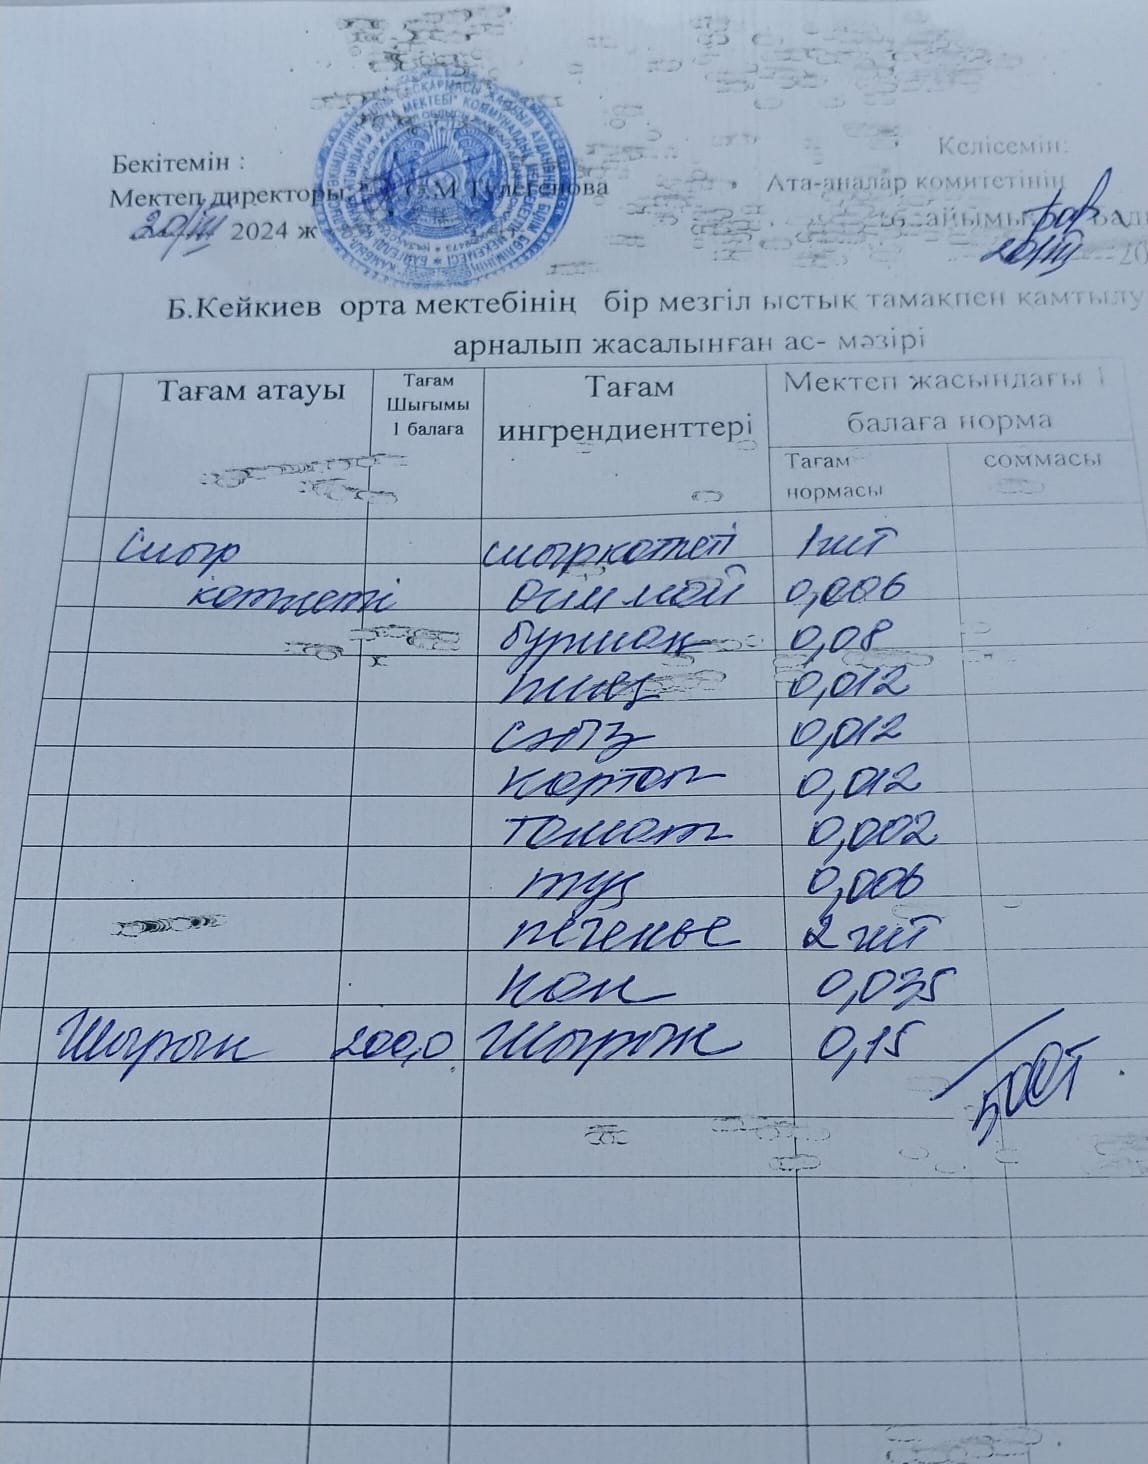 Бекітемін :
Келісемін:
Мектеп директоры: С.М Тулегенова
Ата-аналар комитетінің
20/III 2024 ж
20/III 20
Б.Кейкиев орта мектебінің бір мезгіл ыстық тамақпен қамтылу
арналып жасалынған ас- мәзірі
Тағам атауы
Тағам
Шығымы
1 балаға
Тағам
ингрендиенттері
Мектеп жасындағы 1
балаға норма
Тағам
нормасы
соммасы
Сиыр сиыркотлеті 1 шт
котлеті өсім май 0,006
бұршақ 0,08
пияз 0,012
сәбіз 0,012
картоп 0,012
томат 0,002
тұз 0,006
печенье 2 шт
нан 0,035
Шырын 200,0 Шырын 0,15
500т